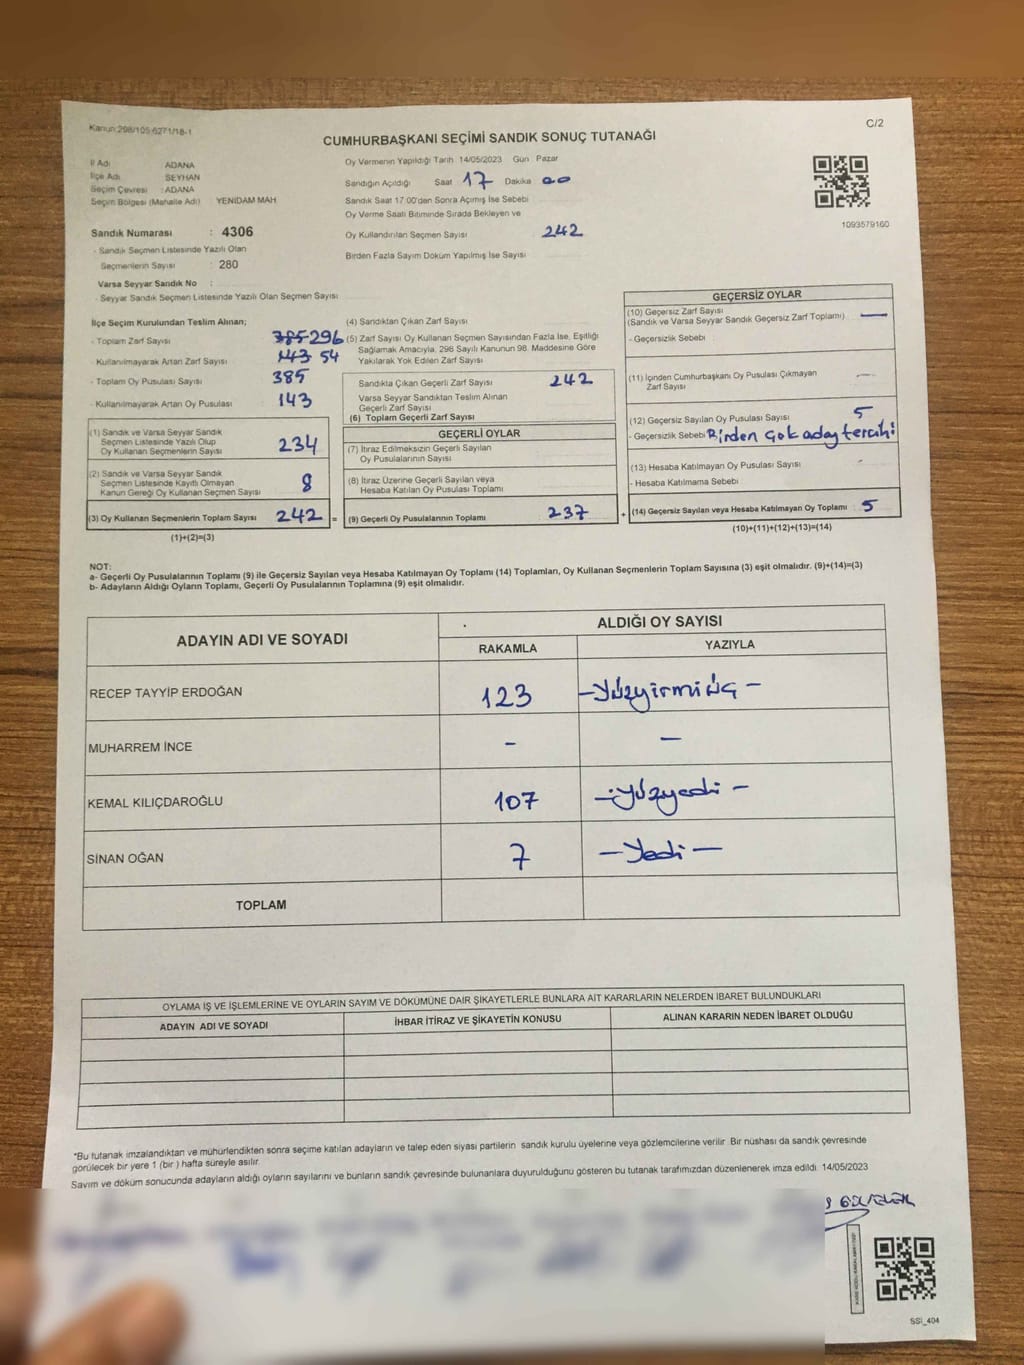 Kanun:298/105-6271/18-1
C/2
CUMHURBAŞKANI SEÇİMİ SANDIK SONUÇ TUTANAĞI
İl Adı ADANA
İlçe Adı SEYHAN
Seçim Çevresi : ADANA
Seçim Bölgesi (Mahalle Adı) YENIDAM MAH
Sandık Numarası : 4306
- Sandık Seçmen Listesinde Yazılı Olan
Seçmenlerin Sayısı : 280
Varsa Seyyar Sandık No :
- Seyyar Sandık Seçmen Listesinde Yazılı Olan Seçmen Sayısı
Oy Vermenin Yapıldığı Tarih 14/05/2023 Gün Pazar
Sandığın Açıldığı Saat 17 Dakika 00
Sandık Saat 17:00'dan Sonra Açımış İse Sebebi
Oy Verme Saati Bitiminde Sırada Bekleyen ve
Oy Kullandırılan Seçmen Sayısı 242
Birden Fazla Sayım Döküm Yapılmış İse Sayısı
1093579160
İlçe Seçim Kurulundan Teslim Alınan;
- Toplam Zarf Sayısı 385 296
- Kullanılmayarak Artan Zarf Sayısı 143 54
- Toplam Oy Pusulası Sayısı 385
- Kullanılmayarak Artan Oy Pusulası 143
(1) Sandık ve Varsa Seyyar Sandık
Seçmen Listesinde Yazılı Olup
Oy Kullanan Seçmenlerin Sayısı 234
(2) Sandık ve Varsa Seyyar Sandık
Seçmen Listesinde Kayıtlı Olmayan
Kanun Gereği Oy Kullanan Seçmen Sayısı 8
(3) Oy Kullanan Seçmenlerin Toplam Sayısı 242 =
(1)+(2)=(3)
(4) Sandıktan Çıkan Zarf Sayısı
(5) Zarf Sayısı Oy Kullanan Seçmen Sayısından Fazla İse, Eşitliği
Sağlamak Amacıyla, 298 Sayılı Kanunun 98. Maddesine Göre
Yakılarak Yok Edilen Zarf Sayısı
Sandıkta Çıkan Geçerli Zarf Sayısı 242
Varsa Seyyar Sandıktan Teslim Alınan
Geçerli Zarf Sayısı
(6) Toplam Geçerli Zarf Sayısı
GEÇERLİ OYLAR
(7) İtiraz Edilmeksizin Geçerli Sayılan
Oy Pusulalarının Sayısı
(8) İtiraz Üzerine Geçerli Sayılan veya
Hesaba Katılan Oy Pusulası Toplamı
(9) Geçerli Oy Pusulalarının Toplamı 237 +
GEÇERSİZ OYLAR
(10) Geçersiz Zarf Sayısı
(Sandık ve Varsa Seyyar Sandık Geçersiz Zarf Toplamı) —
- Geçersizlik Sebebi
(11) İçinden Cumhurbaşkanı Oy Pusulası Çıkmayan
Zarf Sayısı —
(12) Geçersiz Sayılan Oy Pusulası Sayısı 5
- Geçersizlik Sebebi Birden çok aday tercihi
(13) Hesaba Katılmayan Oy Pusulası Sayısı -
- Hesaba Katılmama Sebebi
(14) Geçersiz Sayılan veya Hesaba Katılmayan Oy Toplamı 5
(10)+(11)+(12)+(13)=(14)
NOT:
a- Geçerli Oy Pusulalarının Toplamı (9) ile Geçersiz Sayılan veya Hesaba Katılmayan Oy Toplamı (14) Toplamları, Oy Kullanan Seçmenlerin Toplam Sayısına (3) eşit olmalıdır. (9)+(14)=(3)
b- Adayların Aldığı Oyların Toplamı, Geçerli Oy Pusulalarının Toplamına (9) eşit olmalıdır.
ADAYIN ADI VE SOYADI ALDIĞI OY SAYISI
RAKAMLA YAZIYLA
RECEP TAYYİP ERDOĞAN 123 -Yüzyirmiüç-
MUHARREM İNCE - -
KEMAL KILIÇDAROĞLU 107 -Yüzyedi-
SİNAN OĞAN 7 -Yedi-
TOPLAM
OYLAMA İŞ VE İŞLEMLERİNE VE OYLARIN SAYIM VE DÖKÜMÜNE DAİR ŞİKAYETLERLE BUNLARA AİT KARARLARIN NELERDEN İBARET BULUNDUKLARI
ADAYIN ADI VE SOYADI İHBAR İTİRAZ VE ŞİKAYETİN KONUSU ALINAN KARARIN NEDEN İBARET OLDUĞU
*Bu tutanak imzalandıktan ve mühürlendikten sonra seçime katılan adayların ve talep eden siyasi partilerin sandık kurulu üyelerine veya gözlemcilerine verilir. Bir nüshası da sandık çevresinde
görülecek bir yere 1 (bir ) hafta süreyle asılır.
Sayım ve döküm sonucunda adayların aldığı oyların sayılarını ve bunların sandık çevresinde bulunanlara duyurulduğunu gösteren bu tutanak tarafımızdan düzenlenerek imza edildi 14/05/2023
SSİ_404